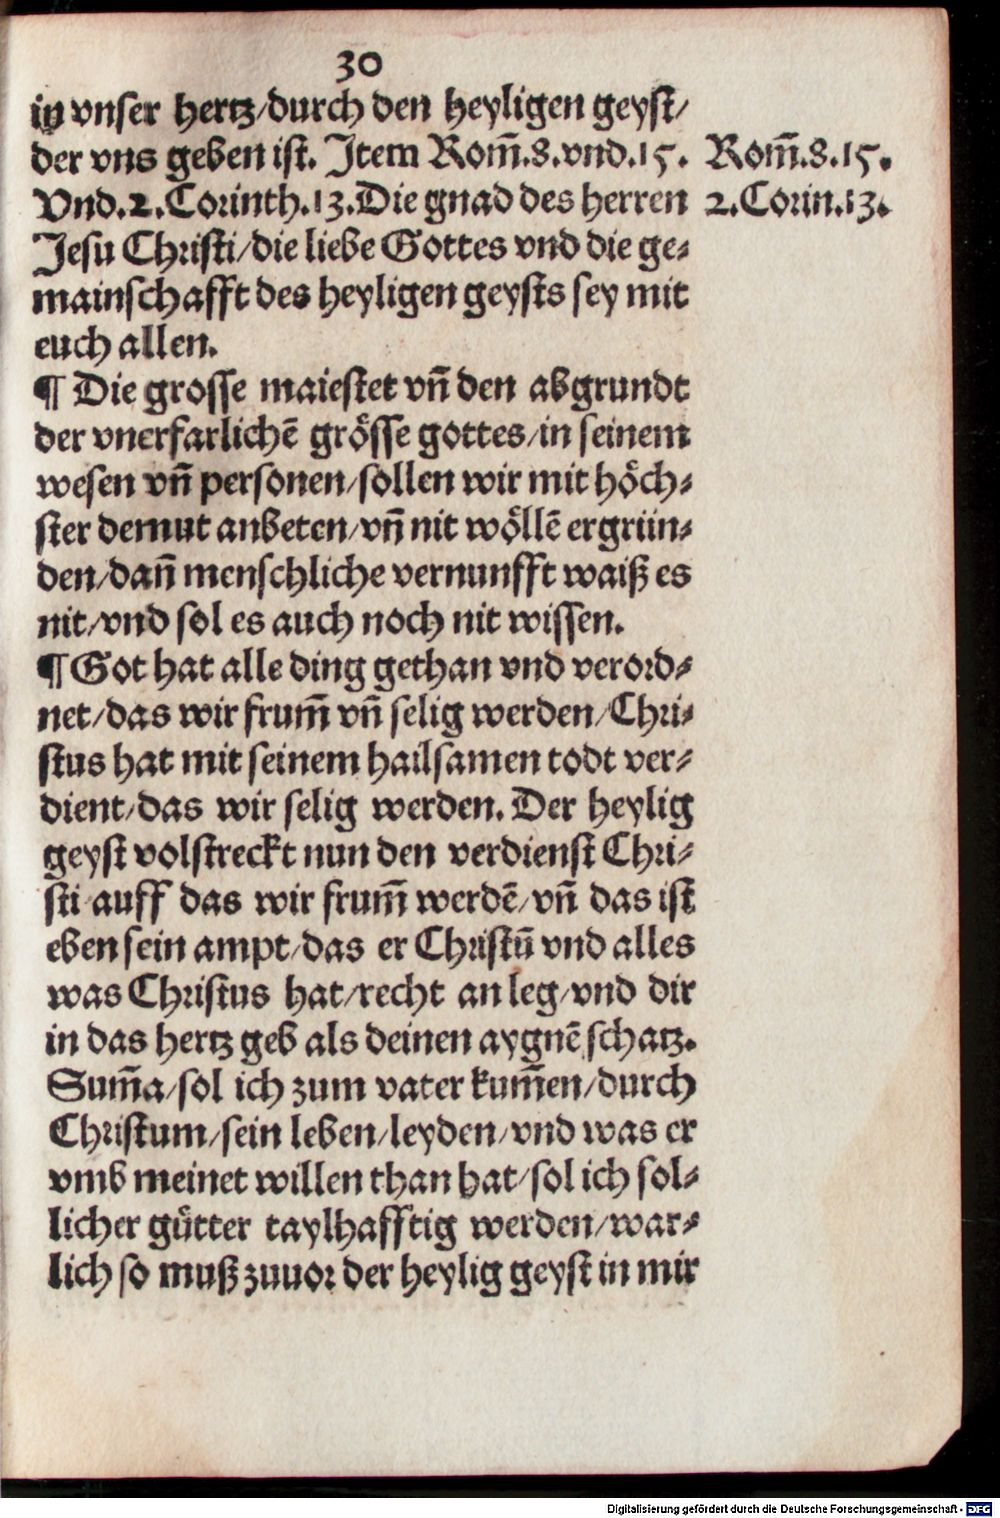 30
in vnser hertz/durch den heyligen geyst/
der vns geben ist. Item Rom̃.8.vnd.15. Rom̃.8.15.
Vnd.2.Corinth.13.Die gnad des herren 2.Corin.13.
Jesu Christi/die liebe Gottes vnd die ge⸗
mainschafft des heyligen geysts sey mit
euch allen.
¶ Die grosse maiestet vñ den abgrundt
der vnerfarlichẽ grösse gottes/in seinem
wesen vñ personen/sollen wir mit höch⸗
ster demut anbeten/vñ nit wöllẽ ergrün⸗
den/dañ menschliche vernunfft waiß es
nit/vnd sol es auch noch nit wissen.
¶ Got hat alle ding gethan vnd verord⸗
net/das wir frum̃ vñ selig werden/Chri⸗
stus hat mit seinem hailsamen todt ver⸗
dient/das wir selig werden. Der heylig
geyst volstreckt nun den verdienst Chri⸗
sti auff das wir frum̃ werdẽ/vñ das ist
eben sein ampt/das er Christũ vnd alles
was Christus hat/recht an leg/vnd dir
in das hertz geb als deinen aygnẽ schatz.
Sum̃a/sol ich zum vater kum̃en/durch
Christum/sein leben/leyden/vnd was er
vmb meinet willen than hat/sol ich sol⸗
licher gütter taylhafftig werden/war⸗
lich so muß zuuor der heylig geyst in mir
Digitalisierung gefördert durch die Deutsche Forschungsgemeinschaft - DFG